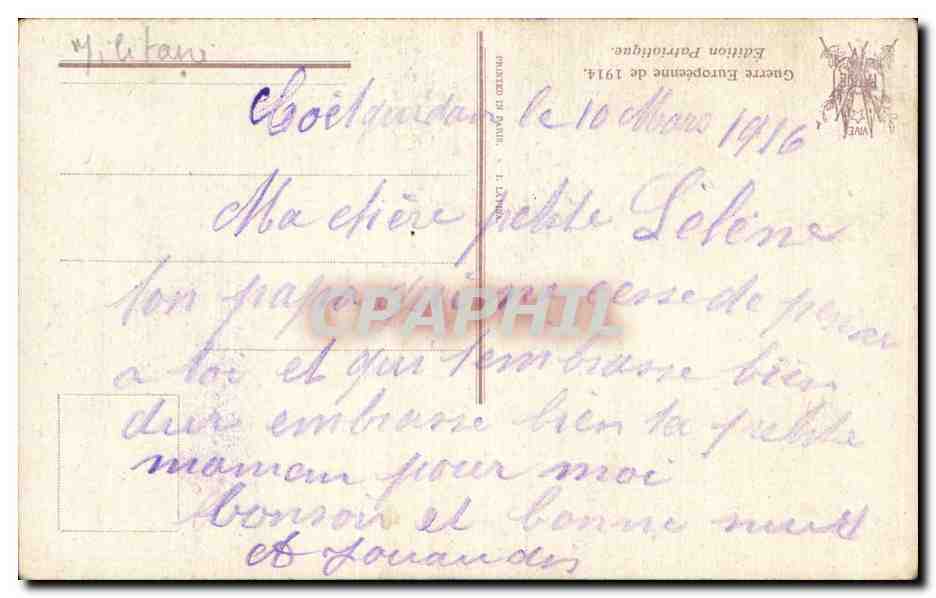 Militaire
Guerre Européenne de 1914.
Edition Patriotique.
VIVE
PRINTED IN PARIS.
Coëtquidan le 10 Mars 1916
Ma chère petite Lélène
ton papa qui ne cesse de penser
a toi et qui t'embrasse bien
dur embrasse bien ta petite
maman pour moi
bonsoir et bonne nuit
A Jouaudin
CPAPHIL